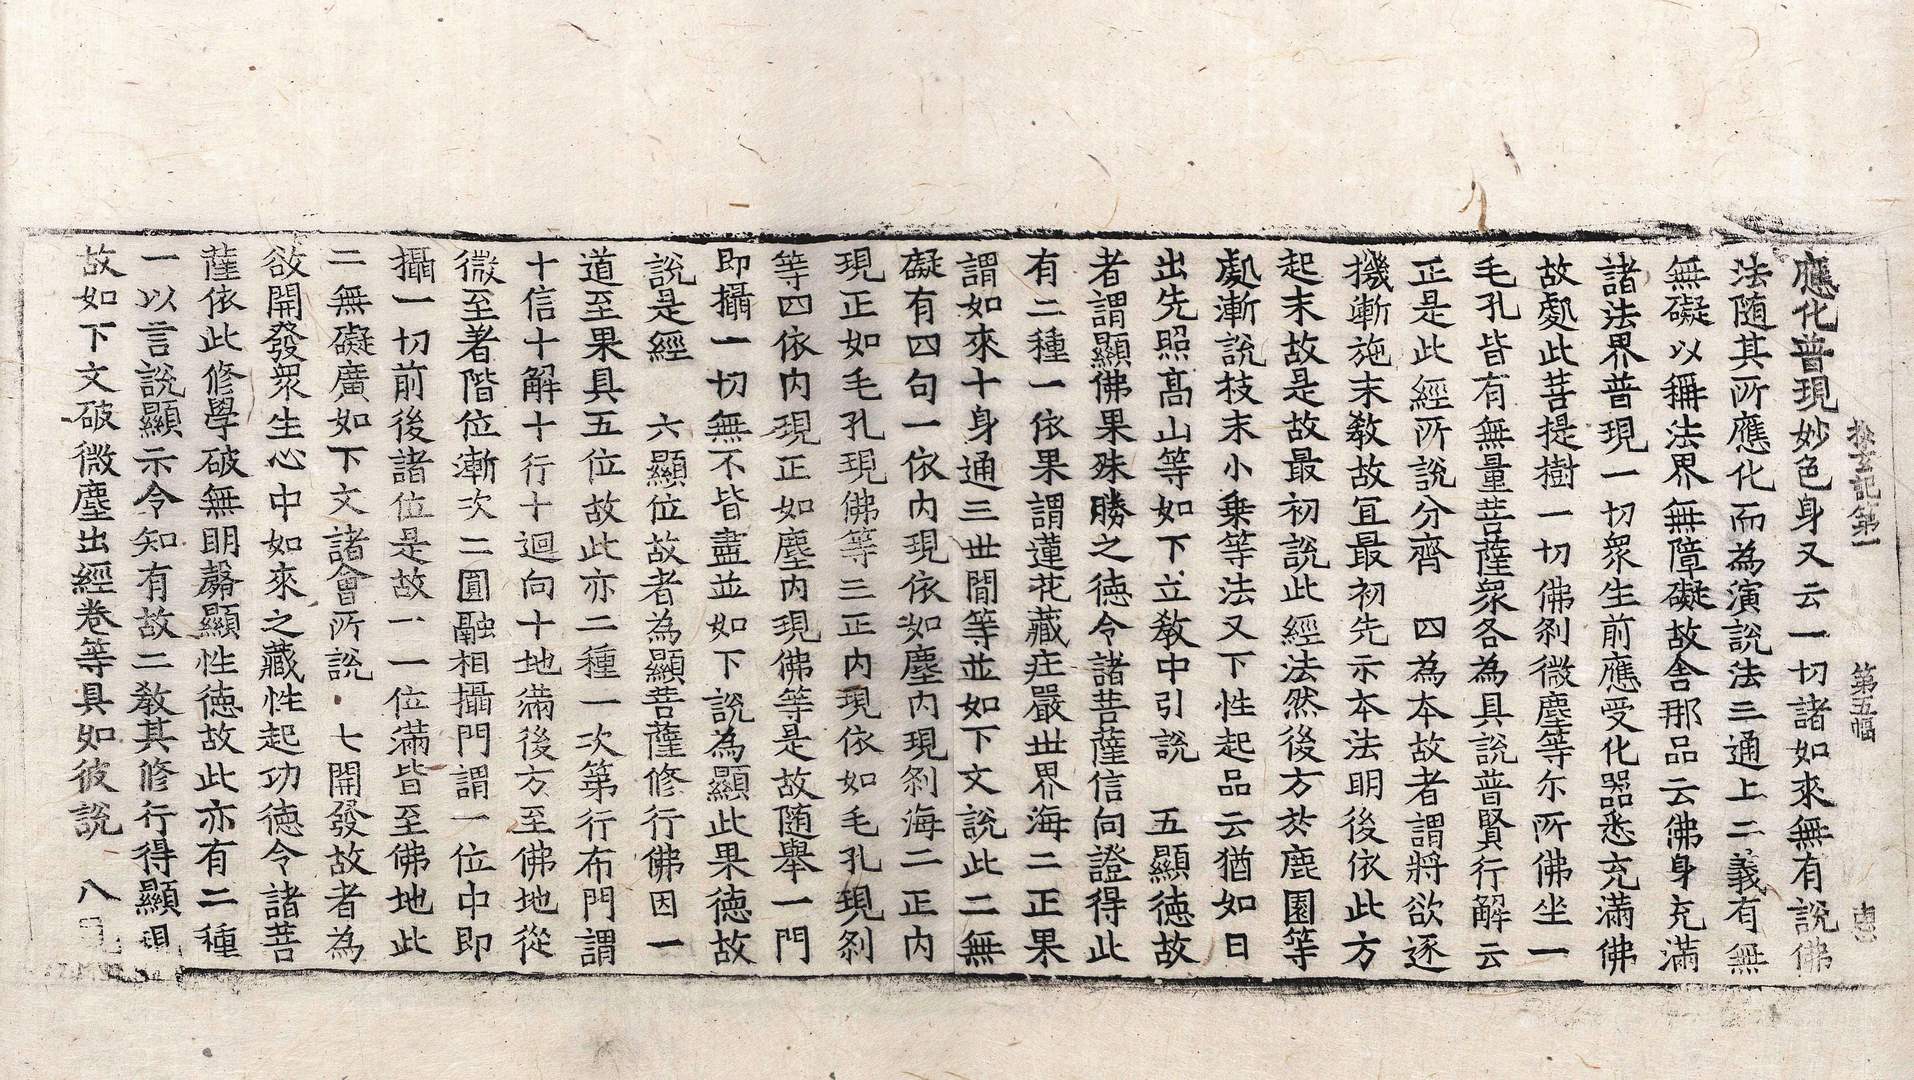 探玄記第一 第五幅 忠
應化普現妙色身又云一切諸如來無有說佛
法随其所應化而為演說法三通上二義有無
無礙以稱法界無障礙故舍那品云佛身充滿
諸法界普現一切衆生前應受化器悉充滿佛
故處此菩提樹一切佛剎微塵等尒所佛坐一
毛孔皆有無量菩薩衆各為具說普賢行解云
正是此經所說分齊 四為本故者謂將欲逐
機漸施末教故宜最初先示本法明後依此方
起末故是故最初說此經法然後方於鹿園等
處漸說枝末小乗等法又下性起品云猶如日
出先照髙山等如下立教中引說 五顯徳故
者謂顯佛果殊勝之徳令諸菩薩信向證得此
有二種一依果謂蓮花藏庄嚴世界海二正果
謂如來十身通三世間等並如下文說此二無
礙有四句一依内現依如塵内現剎海二正内
現正如毛孔現佛等三正内現依如毛孔現剎
等四依内現正如塵内現佛等是故随舉一門
即攝一切無不皆盡並如下說為顯此果徳故
說是經 六顯位故者為顯菩薩修行佛因一
道至果具五位故此亦二種一次第行布門謂
十信十解十行十迴向十地滿後方至佛地從
微至著階位漸次二圓融相攝門謂一位中即
攝一切前後諸位是故一一位滿皆至佛地此
二無礙廣如下文諸會所說 七開發故者為
欲開發衆生心中如來之藏性起功徳令諸菩
薩依此修學破無明㲉顯性徳故此亦有二種
一以言說顯示令知有故二教其修行得顯現
故如下文破微塵出經卷等具如彼說 八